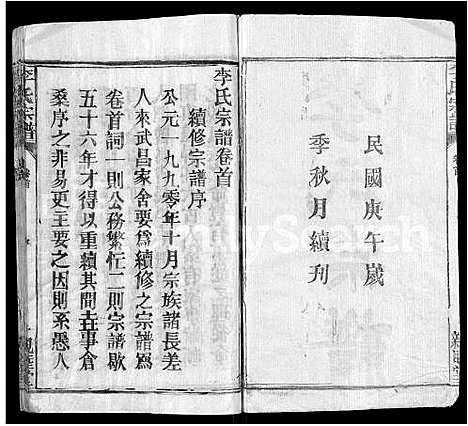 民國庚午歲
季秋月續刊
李氏宗譜卷首
續修宗譜序
公元一九九零年十月宗族諸長差
人來武昌家舍要爲續修之宗譜爲
卷首詞一則公務繁忙二則宗譜歇
五十六年才得以重續其間喜事倉
桑序之非易更主要之因則系愚人
李氏宗譜
卷首